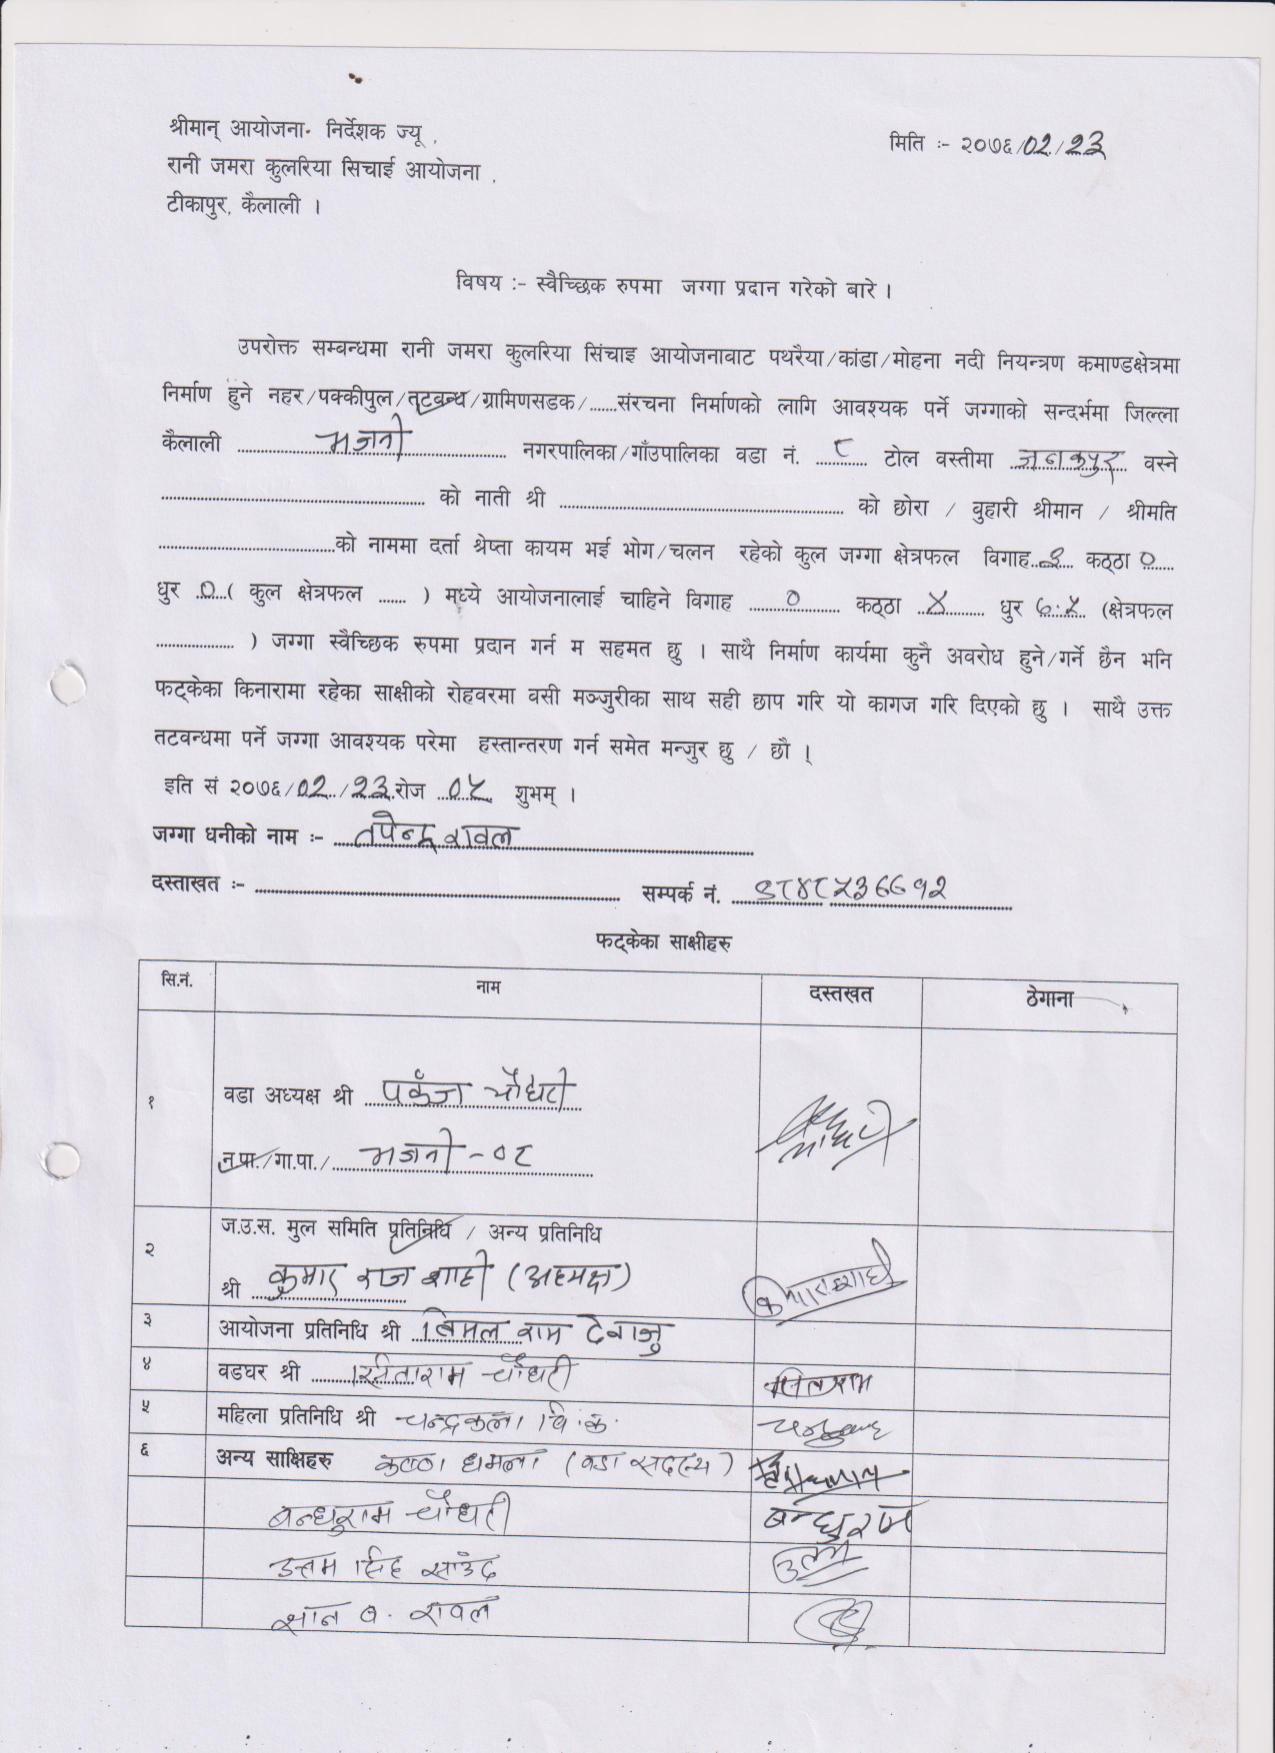 श्रीमान् आयोजना निर्देशक ज्यू ,
मिति :- २०७६/०२/२३
रानी जमरा कुलरिया सिचाई आयोजना .
टीकापुर, कैलाली ।
विषय :- स्वैच्छिक रुपमा जग्गा प्रदान गरेको बारे ।
उपरोक्त सम्बन्धमा रानी जमरा कुलरिया सिंचाइ आयोजनावाट पथरैया/कांडा/मोहना नदी नियन्त्रण कमाण्डक्षेत्रमा
निर्माण हुने नहर/पक्कीपुल/तटबन्ध/ग्रामिणसडक/......संरचना निर्माणको लागि आवश्यक पर्ने जग्गाको सन्दर्भमा जिल्ला
कैलाली भजनी नगरपालिका/गाँउपालिका वडा नं. ८ टोल वस्तीमा जनकपुर वस्ने
........ को नाती श्री ........ को छोरा / वुहारी श्रीमान / श्रीमति
........को नाममा दर्ता श्रेष्ता कायम भई भोग/चलन रहेको कुल जग्गा क्षेत्रफल विगाह..२.... कठ्ठा ०
धुर ..०...( कुल क्षेत्रफल ...... ) मध्ये आयोजनालाई चाहिने विगाह ० कठ्ठा ४ धुर ७.५ (क्षेत्रफल
........ ) जग्गा स्वैच्छिक रुपमा प्रदान गर्न म सहमत छु । साथै निर्माण कार्यमा कुनै अवरोध हुने/गर्ने छैन भनि
फट्केका किनारामा रहेका साक्षीको रोहवरमा वसी मञ्जुरीका साथ सही छाप गरि यो कागज गरि दिएको छु । साथै उक्त
तटवन्धमा पर्ने जग्गा आवश्यक परेमा हस्तान्तरण गर्न समेत मन्जुर छु / छौ ।
इति सं २०७६/०२/२३ रोज ०५ शुभम् ।
जग्गा धनीको नाम :- तपेन्द्र रावल
दस्ताखत :- ........ सम्पर्क नं. ९८४८५३६६१२
फट्केका साक्षीहरु
सि.नं. नाम दस्तखत ठेगाना
१ वडा अध्यक्ष श्री पकंज चौधरी
न.पा./गा.पा./ भजनी -०८
२ ज.उ.स. मुल समिति प्रतिनिधि / अन्य प्रतिनिधि
श्री कुमार राज शाही (अध्यक्ष)
३ आयोजना प्रतिनिधि श्री बिमल राम देवाजु
४ वडघर श्री सिताराम चौधरी
५ महिला प्रतिनिधि श्री चन्द्रकला वि.क.
६ अन्य साक्षिहरु धमला (वडा सदस्य)
बन्धुराम चौधरी बन्धुराम
उत्तम सिंह साउंद
शान ब. रावल